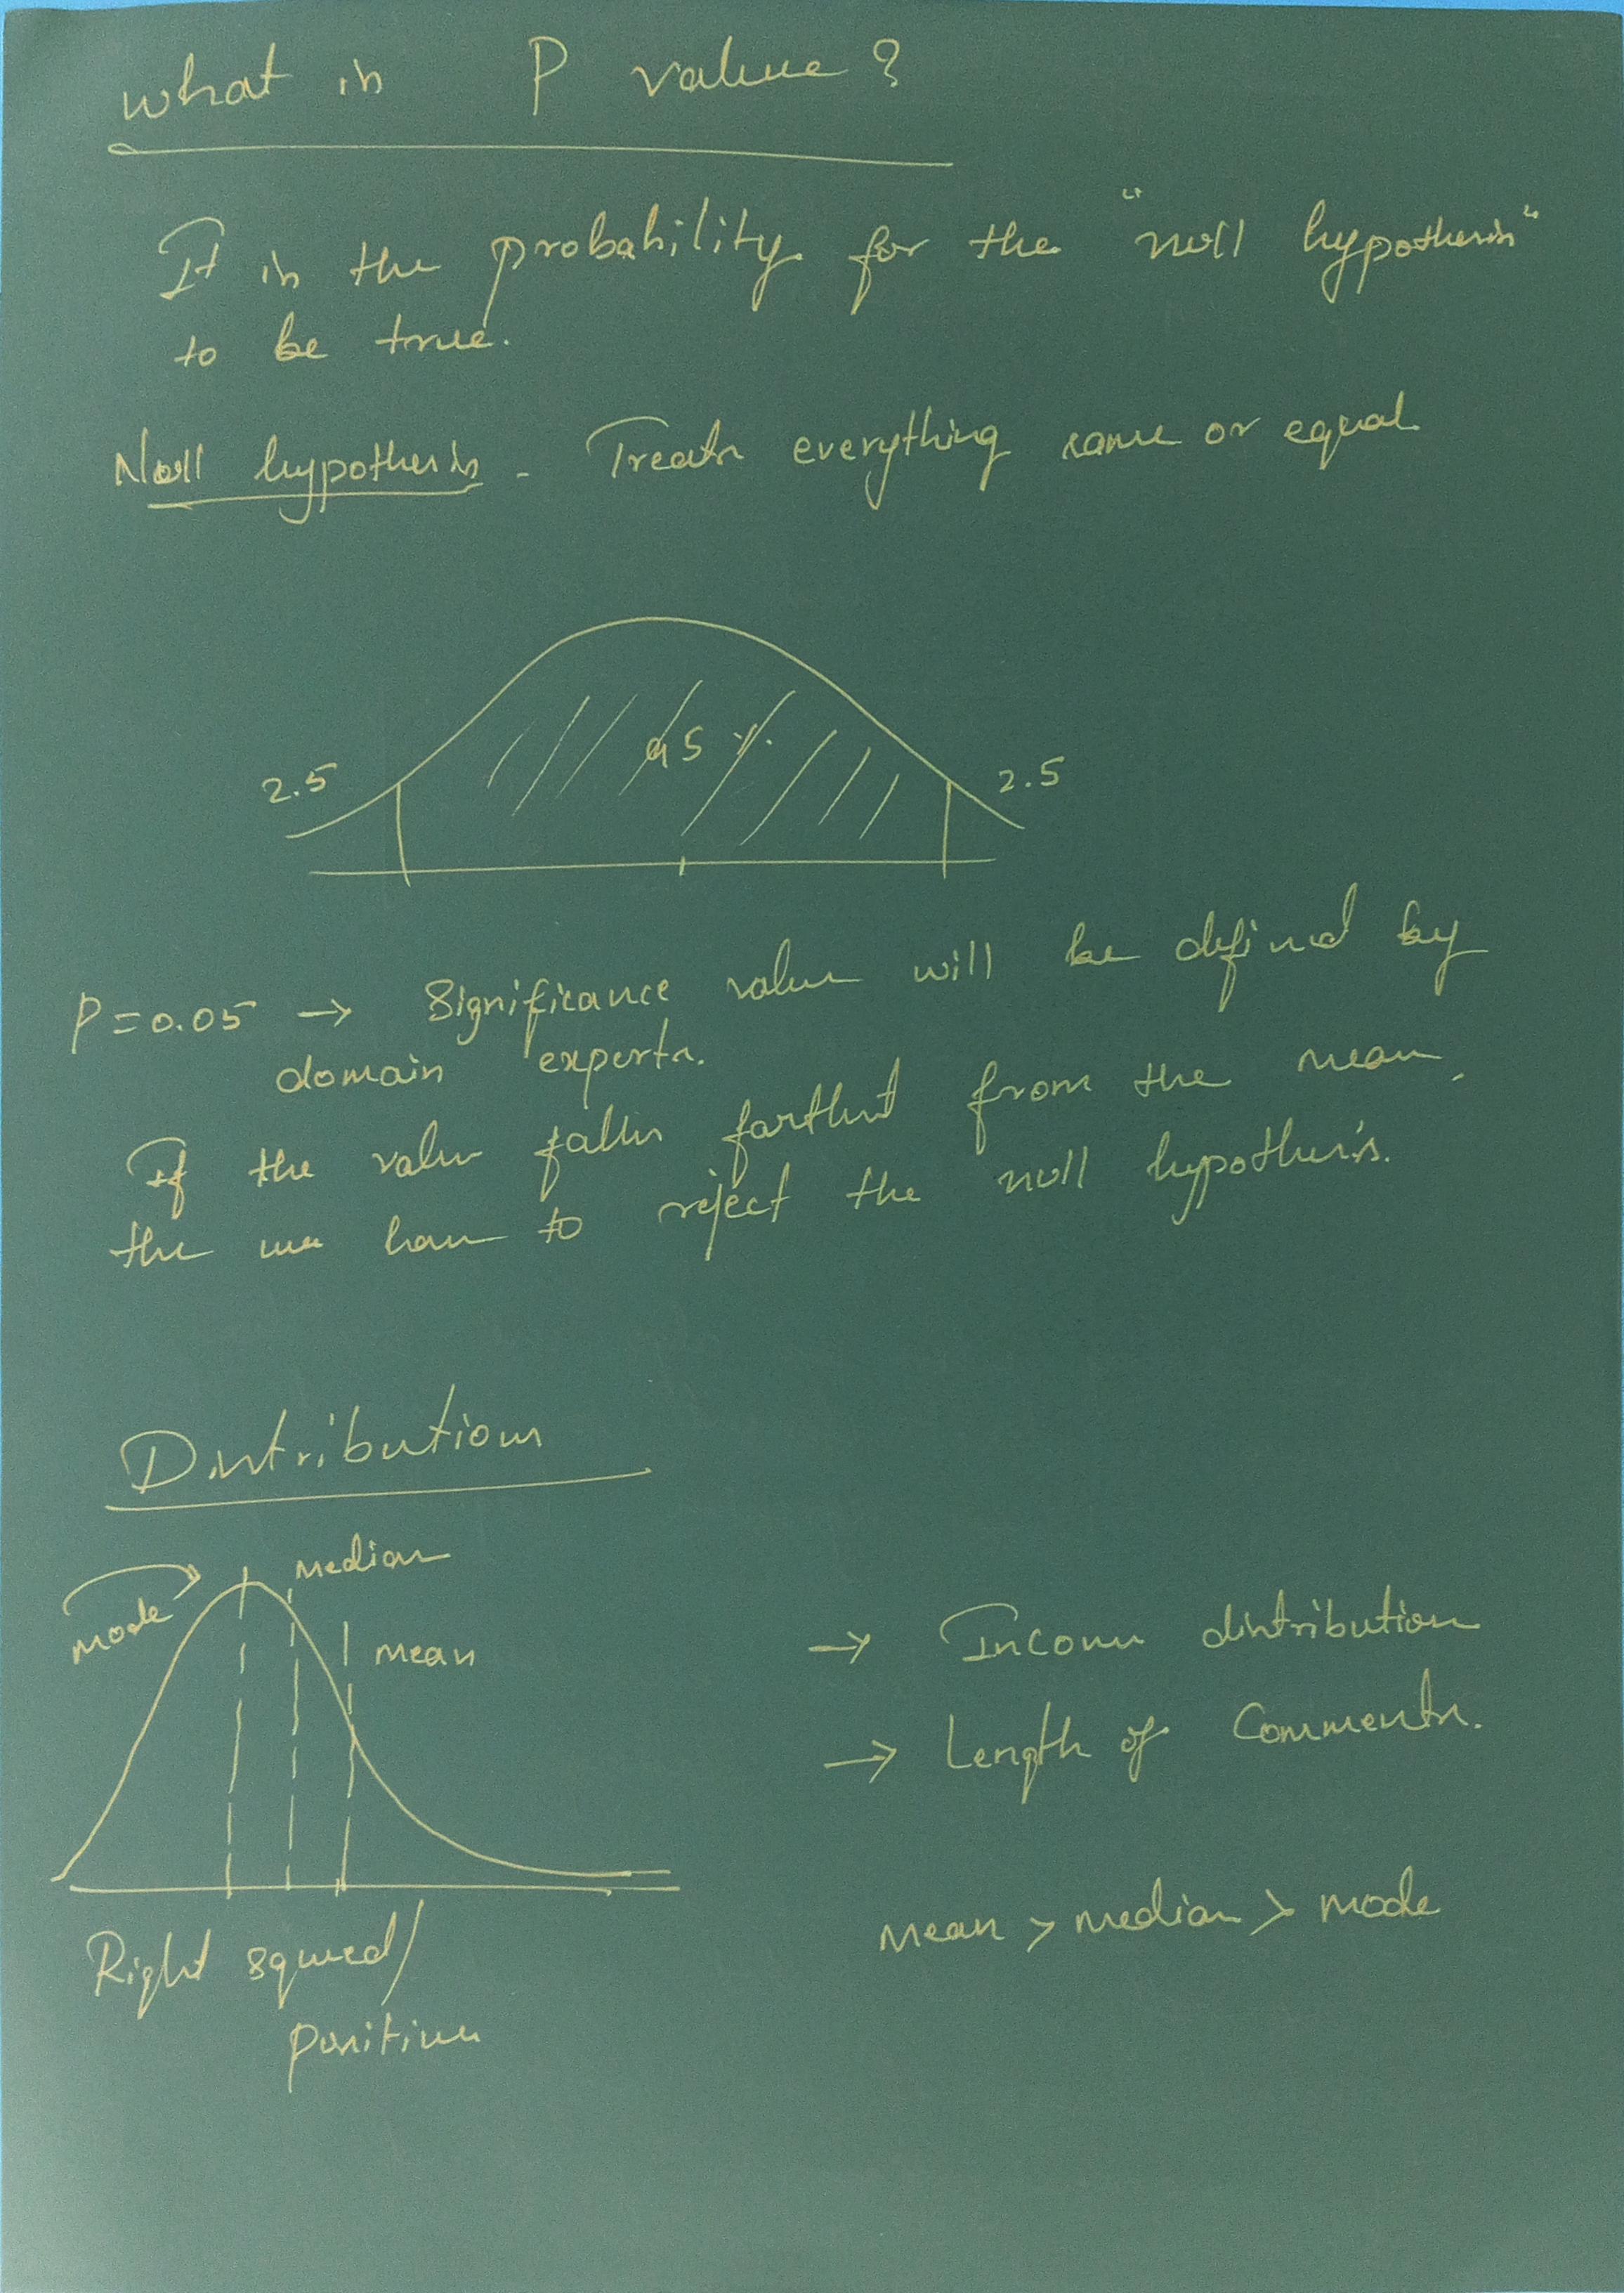 What is P value?
It is the probability for the "null hypothesis"
to be true.
Null hypothesis - Treats everything same or equal
95 %
2.5
2.5
P = 0.05 → Significance value will be defined by
domain experts.
If the value falls farthest from the mean,
the we have to reject the null hypothesis.
Distributions
median
mode
mean
→ Income distribution
→ Length of Comments.
Mean > median > mode
Right squed/
positive